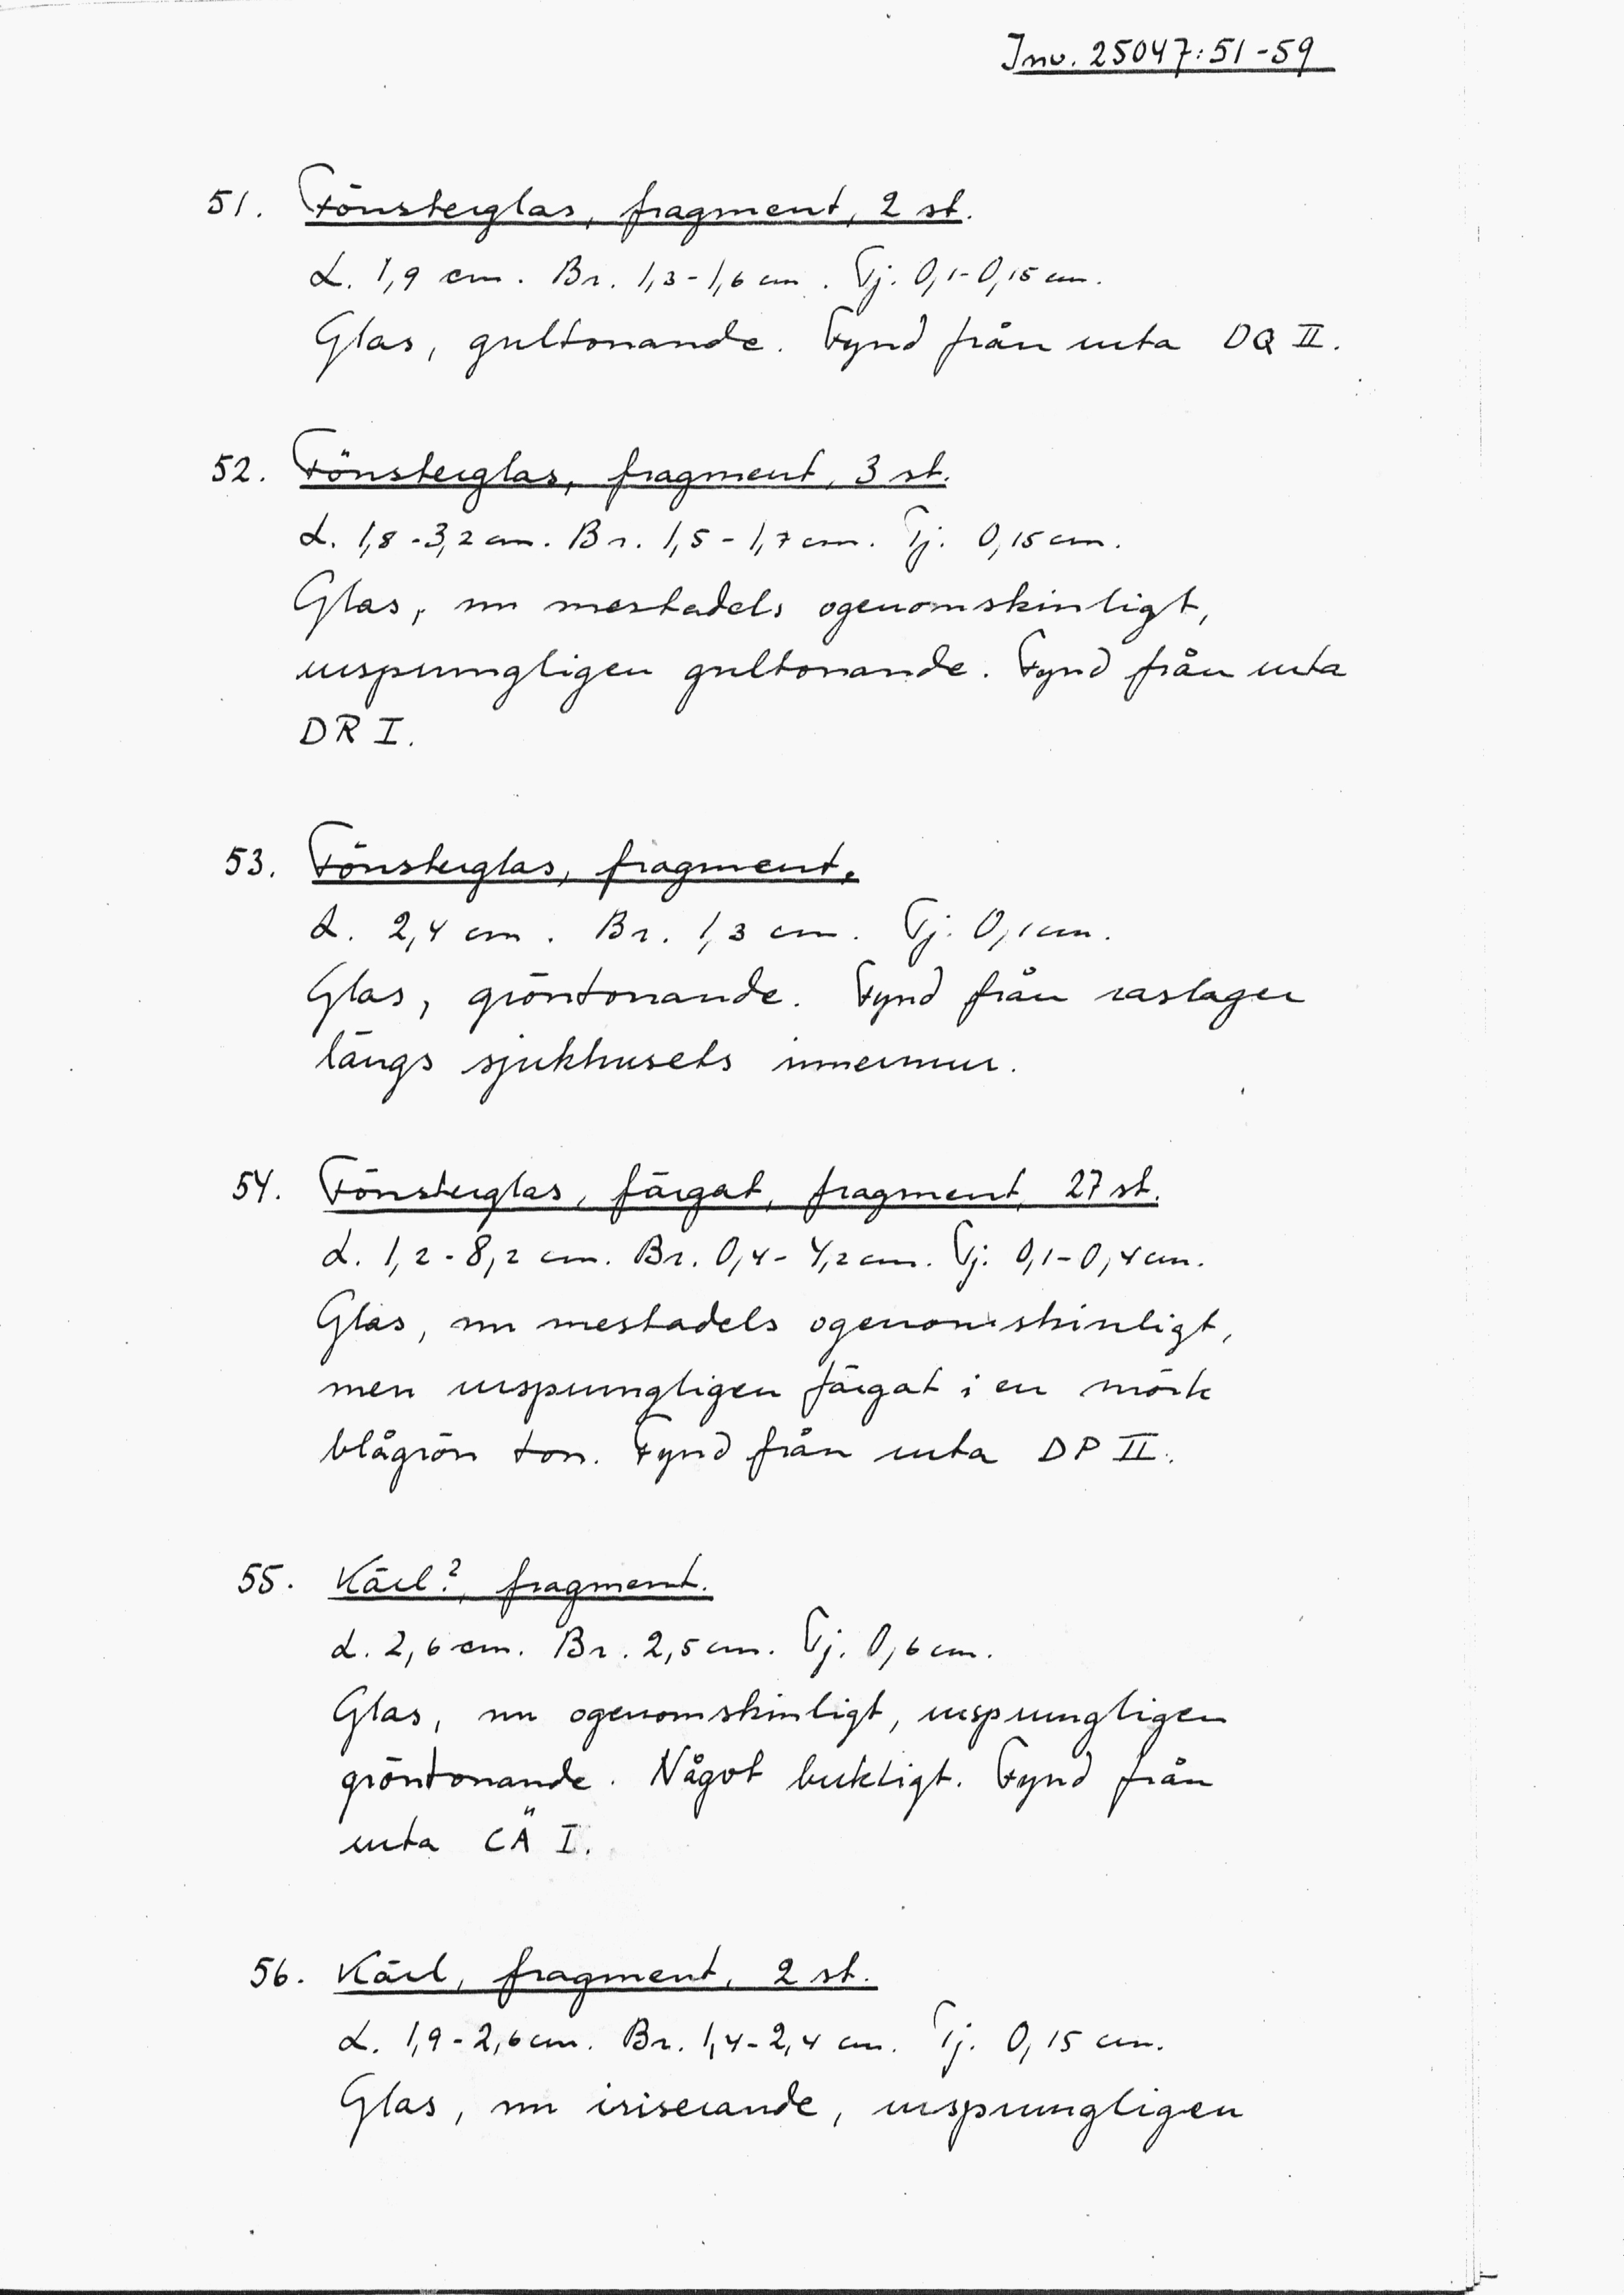 Inv. 25047:51-59
51. Fönsterglas, fragment, 2 st.
L. 1,9 cm. Br. 1,3-1,6 cm. Tj. 0,1-0,15 cm.
Glas, gultonande. Fynd från ruta DQ II.
52. Fönsterglas, fragment, 3 st.
L. 1,8-3,2 cm. Br. 1,5-1,7 cm. Tj. 0,15 cm.
Glas, nu mestadels ogenomskinligt,
ursprungligen gultonande. Fynd från ruta
DR I.
53. Fönsterglas, fragment.
L. 2,4 cm. Br. 1,3 cm. Tj. 0,1 cm.
Glas, gröntonande. Fynd från raslager
längs sjukhusets innermur.
54. Fönsterglas, färgat, fragment, 27 st.
L. 1,2-8,2 cm. Br. 0,4-4,2 cm. Tj. 0,1-0,4 cm.
Glas, nu mestadels ogenomskinligt,
men ursprungligen färgat i en mörk
blågrön ton. Fynd från ruta DP II.
55. Kärl?, fragment.
L. 2,6 cm. Br. 2,5 cm. Tj. 0,6 cm.
Glas, nu ogenomskinligt, ursprungligen
gröntonande. Något buktigt. Fynd från
ruta CÄ I.
56. Kärl, fragment, 2 st.
L. 1,9-2,6 cm. Br. 1,4-2,4 cm. Tj. 0,15 cm.
Glas, nu iriserande, ursprungligen